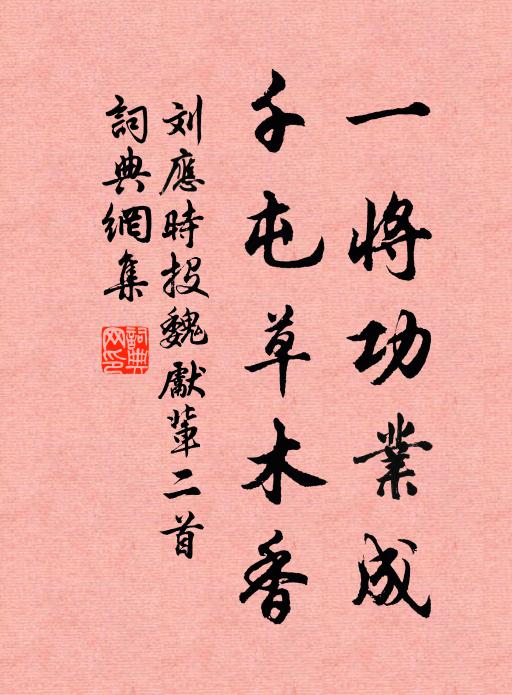 一将功業成
千屯草木香
刘應時投魏獻輩二首
詞典網集
詞典網印